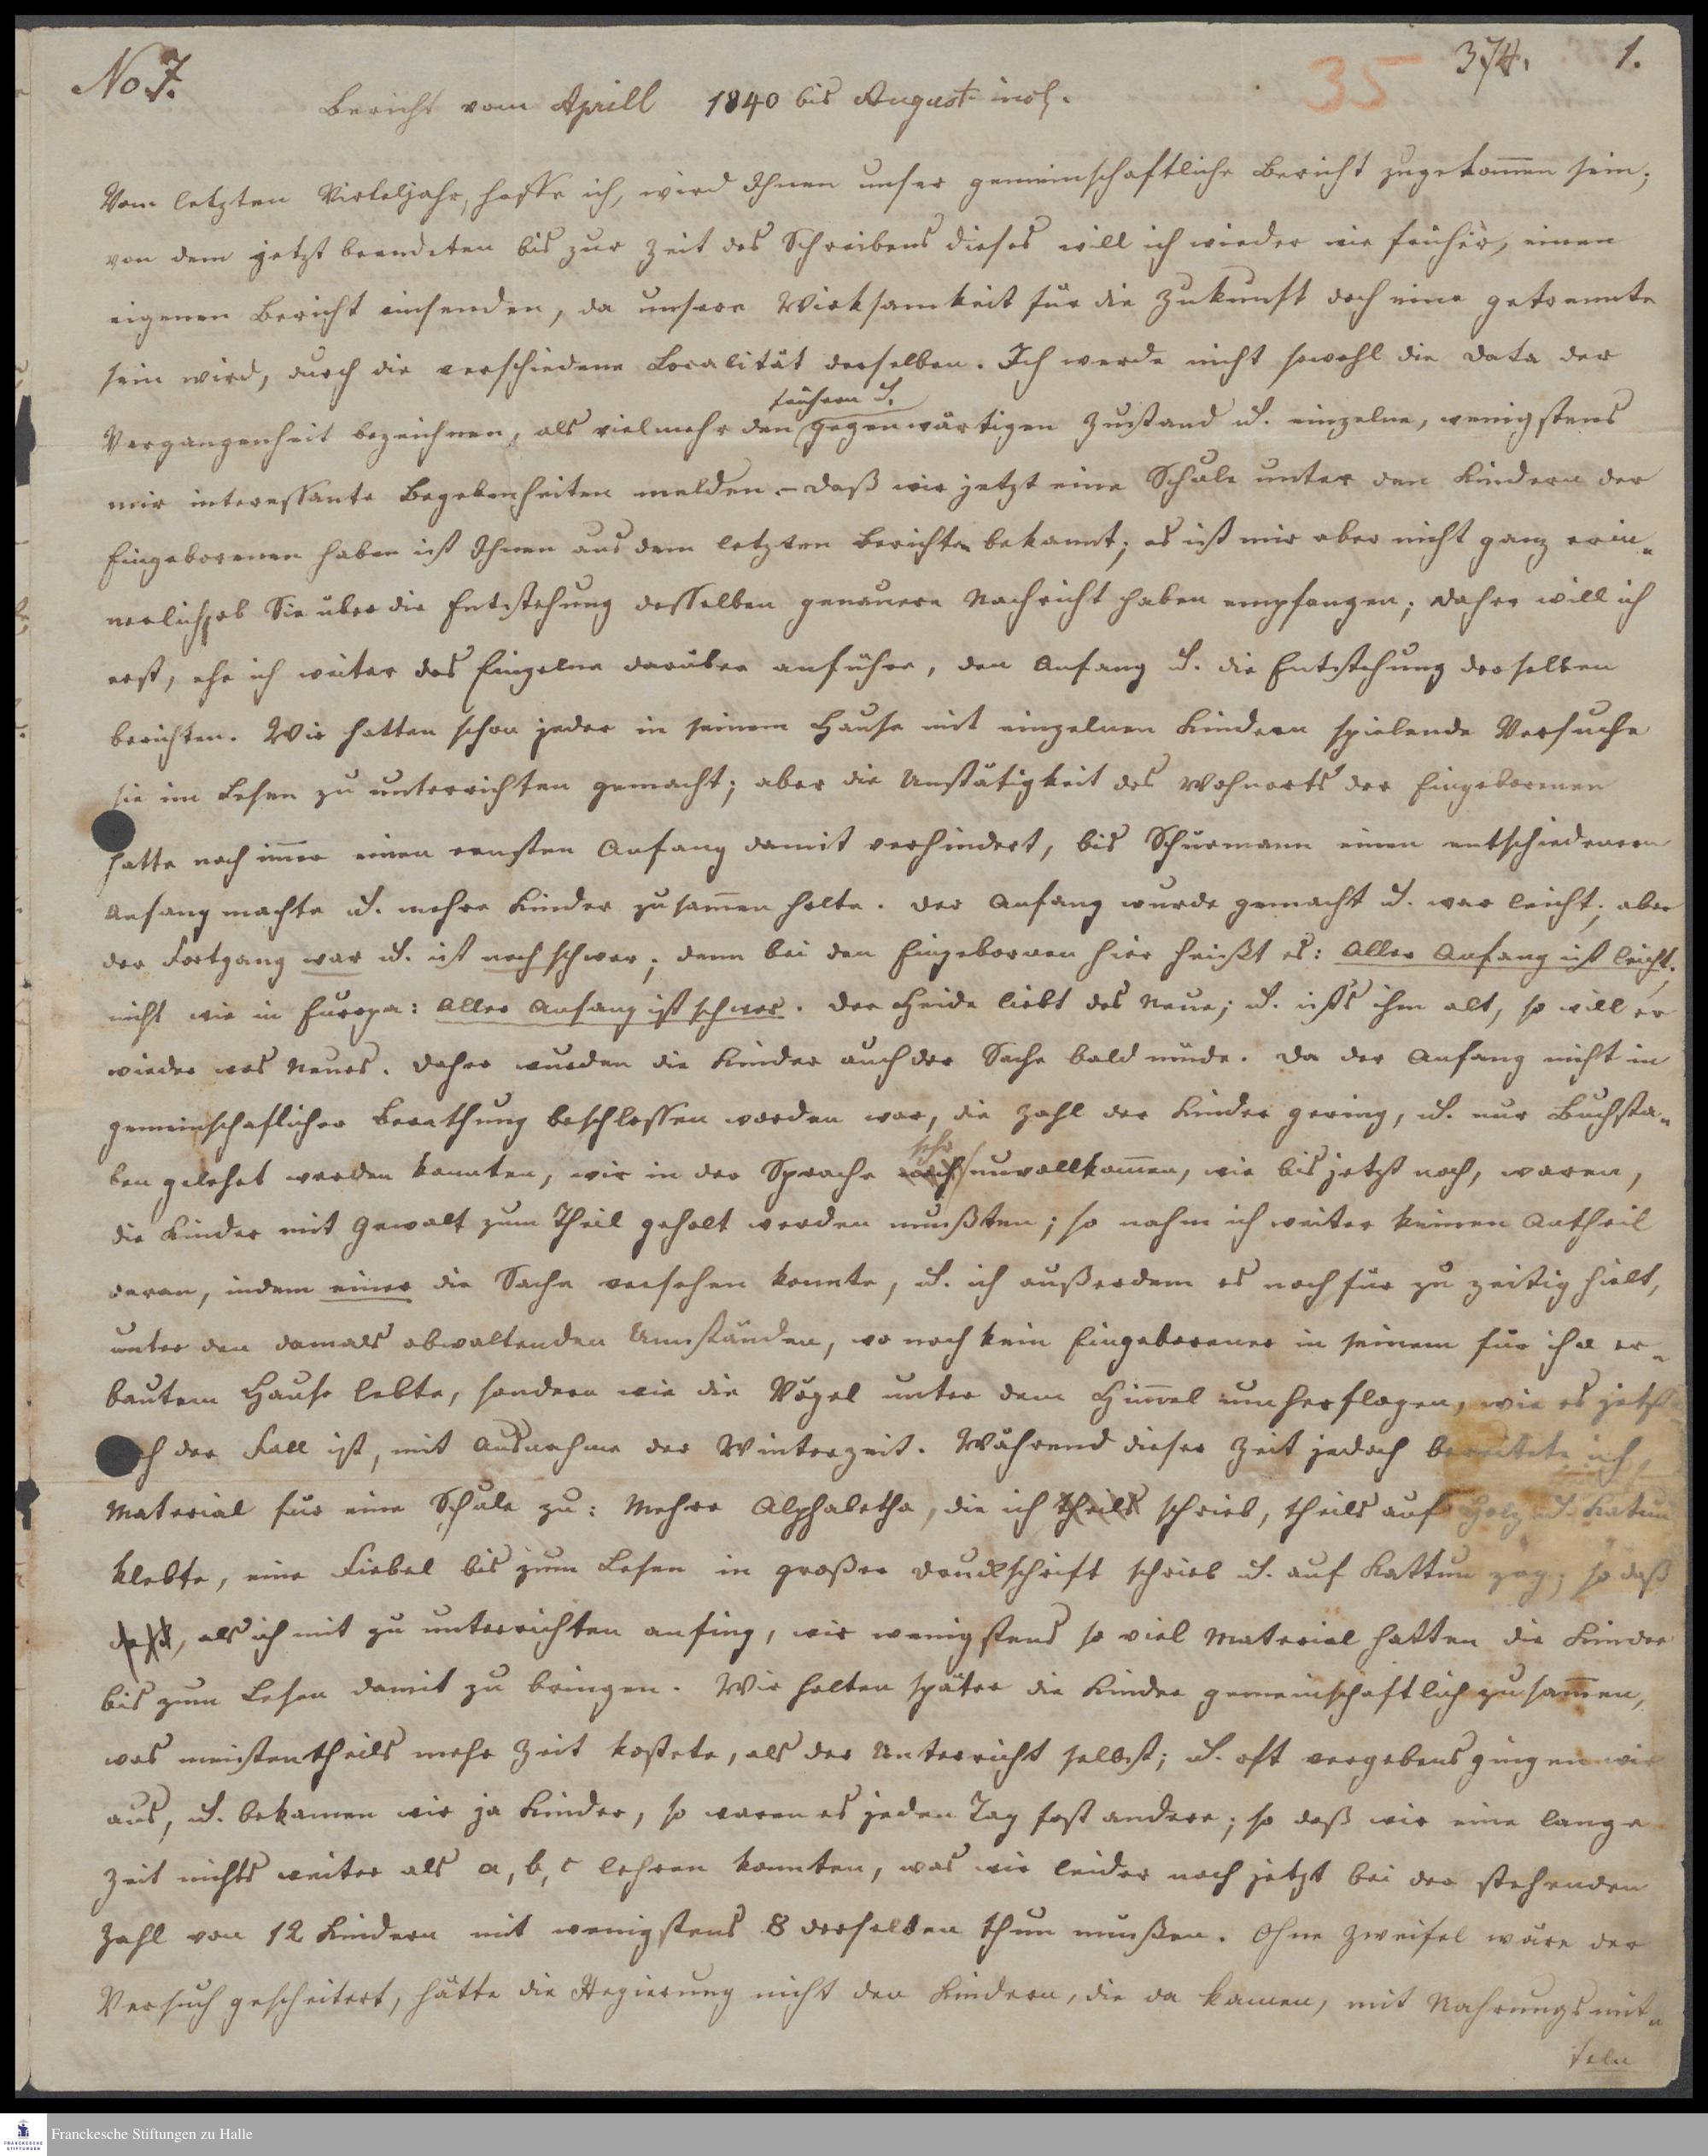 No 7.
35
374.
1.
Bericht vom Aprill 1840 bis August incl.
Vom letzten Virteljahr, hoffe ich, wird Ihnen unser gemeinschaftlicher Bericht zugekom̅en sein;
von dem jetzt beendeten bis zur Zeit des Schreibens dieses will ich wieder wie früher, einen
eigenen Bericht einsenden, da unsere Wirksamkeit für die Zukunft doch eine getrennte
sein wird, durch die verschiedene Localität derselben. Ich werde nicht sowohl die Data der
frühern u.
Vergangenheit bezeichnen, als vielmehr den gegenwärtigen Zustand u. einzelne, wenigstens
mir interessante Begebenheiten melden. – Daß wir jetzt eine Schule unter den Kindern der
Eingeborenen haben ist Ihnen aus dem letzten Berichte bekannt; es ist mir aber nicht ganz erin-
nerlich, ob Sie über die Entstehung desselben genauere Nachricht haben empfangen; daher will ich
erst, ehe ich weiter das Einzelne darüber anführe, den Anfang u. die Entstehung derselben
berichten. Wir hatten schon jeder in seinem Hause mit einzelnen Kindern spielende Versuche
sie im Lesen zu unterrichten gemacht; aber die Unstätigkeit des Wohnorts der Eingebornen
hatte noch im̅er einen ernsten Anfang damit verhindert, bis Schürmann einen entschiedenern
Anfang machte u. mehre Kinder zusam̅en holte. Der Anfang wurde gemacht u. war leicht; aber
der Fortgang war u. ist noch schwer; denn bei den Eingebornen hier heißt es: Aller Anfang ist leicht,
nicht wie in Europa: Aller Anfang ist schwer. Der Heide liebt das Neue; u. ist's ihm alt, so will er
wieder was Neues. Daher wurden die Kinder auch der Sache bald müde. Da der Anfang nicht in
gemeinschaflicher Berathung beschlossen worden war, die Zahl der Kinder gering, u. nur Buchsta-
sehr
ben gelehrt werden konnten, wir in der Sprache noch unvollkom̅en, wie bis jetzt noch, waren,
die Kinder mit Gewalt zum Theil geholt werden mußten; so nahm ich weiter keinen Antheil
daran, indem einer die Sache versehen konnte, u. ich außerdem es noch für zu zeitig hielt,
unter den damals obwaltenden Umständen, wo noch kein Eingeborener in seinem für ihn er-
bautem Hause lebte, sondern wie die Vögel unter dem Him̅el umherflogen, wie es jetzt
noch der Fall ist, mit Ausnahme der Winterzeit. Während dieser Zeit jedoch bereitete ich
Material für eine Schule zu: Mehre Alphabethe, die ich theils schrieb, theils auf Holz u. Katun
klebte, eine Fiebel bis zum Lesen in großer Druckschrift schrieb u. auf Kattun zog; so daß
daß, als ich mit zu unterrichten anfing, wir wenigstens so viel Material hatten die Kinder
bis zum Lesen damit zu bringen. Wir holten später die Kinder gemeinschaftlich zusam̅en,
was meistentheils mehr Zeit kostete, als der Unterricht selbst; u. oft vergebens gingen wir
aus, u. bekamen wir ja Kinder, so waren es jeden Tag fast andere; so daß wir eine lange
Zeit nichts weiter als a, b, c lehren konnten, was wir leider noch jetzt bei der stehenden
Zahl von 12 Kindern mit wenigstens 8 derselben thun mußen. Ohne Zweifel wäre der
Versuch gescheitert, hätte die Regierung nicht den Kindern, die da kamen, mit Nahrungsmit-
teln
FRANCKESCHE STIFTUNGEN
Franckesche Stiftungen zu Halle